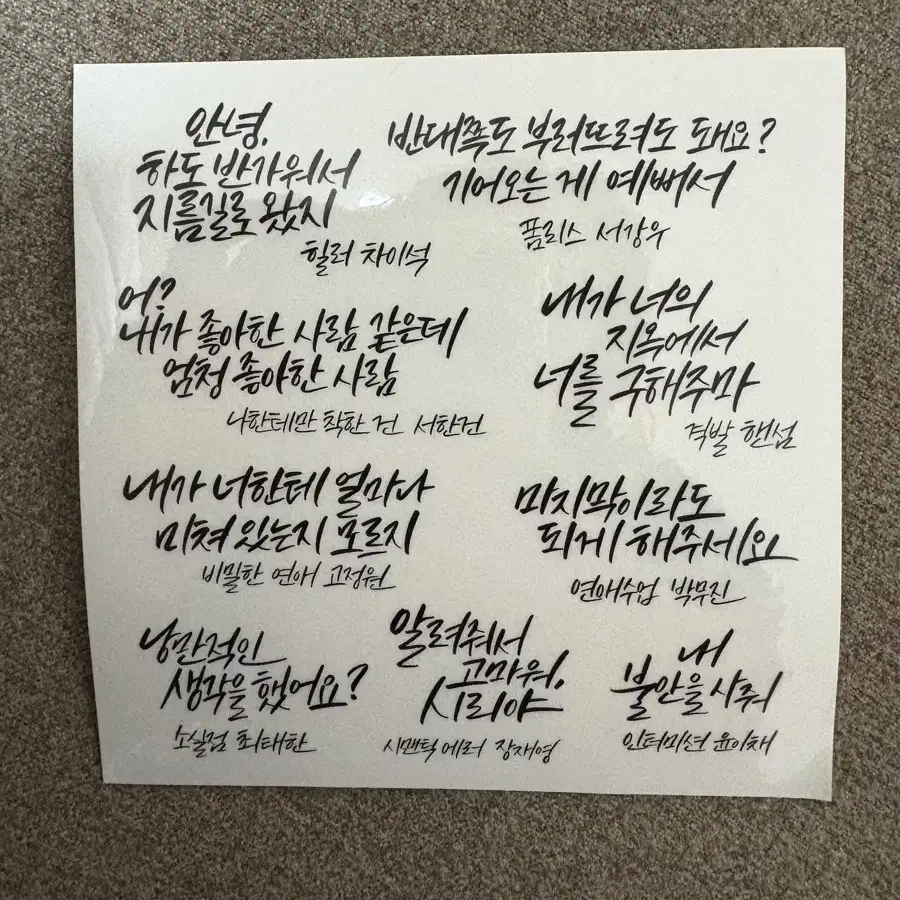 안녕,
하도 반가워서
지름길로 왔지
힐러 차이석
반대쪽도 부러뜨려도 돼요?
기어오는 게 예뻐서
폼리스 서강우
어?
내가 좋아한 사람 같은데
엄청 좋아한 사람
나한테만 착한 건 서한건
내가 너의
지옥에서
너를 구해주마
격발 헨섭
내가 너한테 얼마나
미쳐 있는지 모르지
비밀한 연애 고정원
마지막이라도
되게 해주세요
연애수업 박무진
낭만적인
생각을 했어요?
소실점 최태한
알려줘서
고마워,
시리야
시맨틱 에러 장재영
내
불안을 사줘
인터미션 윤이채